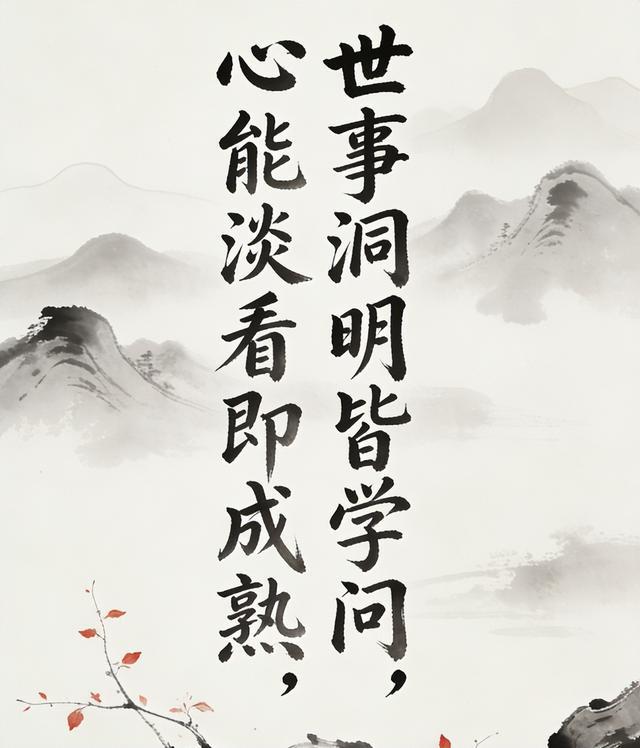 世事洞明皆学问，
心能淡看即成熟，